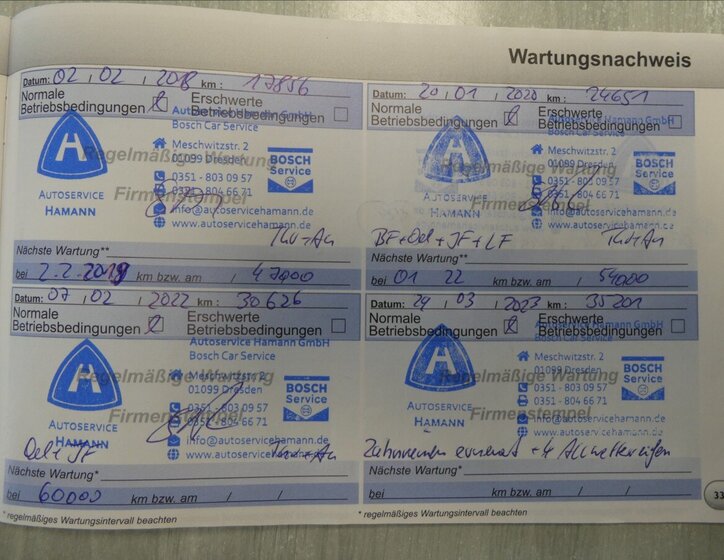 Wartungsnachweis
Datum: 02, 02, 2018 km: 17856
Normale Betriebsbedingungen
Erschwerte Betriebsbedingungen
Autoservice Hamann GmbH
Bosch Car Service
Regelmäßige Wartung
Meschwitzstr. 2
01099 Dresden
0351 - 803 09 57
0351 - 804 66 71
BOSCH
Service
Firmenstempel
AUTOSERVICE
HAMANN
info@autoservicehamann.de
www.autoservicehamann.de
Nächste Wartung**
bei 2.2.2019 km bzw. am / 47000
Datum: 20, 01, 2020 km: 24651
Normale Betriebsbedingungen
Erschwerte Betriebsbedingungen
Autoservice Hamann GmbH
Bosch Car Service
Regelmäßige Wartung
Meschwitzstr. 2
01099 Dresden
0351 - 803 09 57
0351 - 804 66 71
BOSCH
Service
Firmenstempel
AUTOSERVICE
HAMANN
info@autoservicehamann.de
www.autoservicehamann.de
BF+Oel+JF+LF
Nächste Wartung**
bei 01 22 km bzw. am / 54000
Datum: 07, 02, 2022 km: 30626
Normale Betriebsbedingungen
Erschwerte Betriebsbedingungen
Autoservice Hamann GmbH
Bosch Car Service
Regelmäßige Wartung
Meschwitzstr. 2
01099 Dresden
0351 - 803 09 57
0351 - 804 66 71
BOSCH
Service
Firmenstempel
AUTOSERVICE
HAMANN
info@autoservicehamann.de
www.autoservicehamann.de
Oel+JF
Nächste Wartung*
bei 60000 km bzw. am / /
* regelmäßiges Wartungsintervall beachten
Datum: 24, 03, 2023 km: 35201
Normale Betriebsbedingungen
Erschwerte Betriebsbedingungen
Autoservice Hamann GmbH
Bosch Car Service
Regelmäßige Wartung
Meschwitzstr. 2
01099 Dresden
0351 - 803 09 57
0351 - 804 66 71
BOSCH
Service
Firmenstempel
AUTOSERVICE
HAMANN
info@autoservicehamann.de
www.autoservicehamann.de
Zahnriemen erneuert + 4 Allwetterreifen
Nächste Wartung*
bei km bzw. am / /
* regelmäßiges Wartungsintervall beachten
33